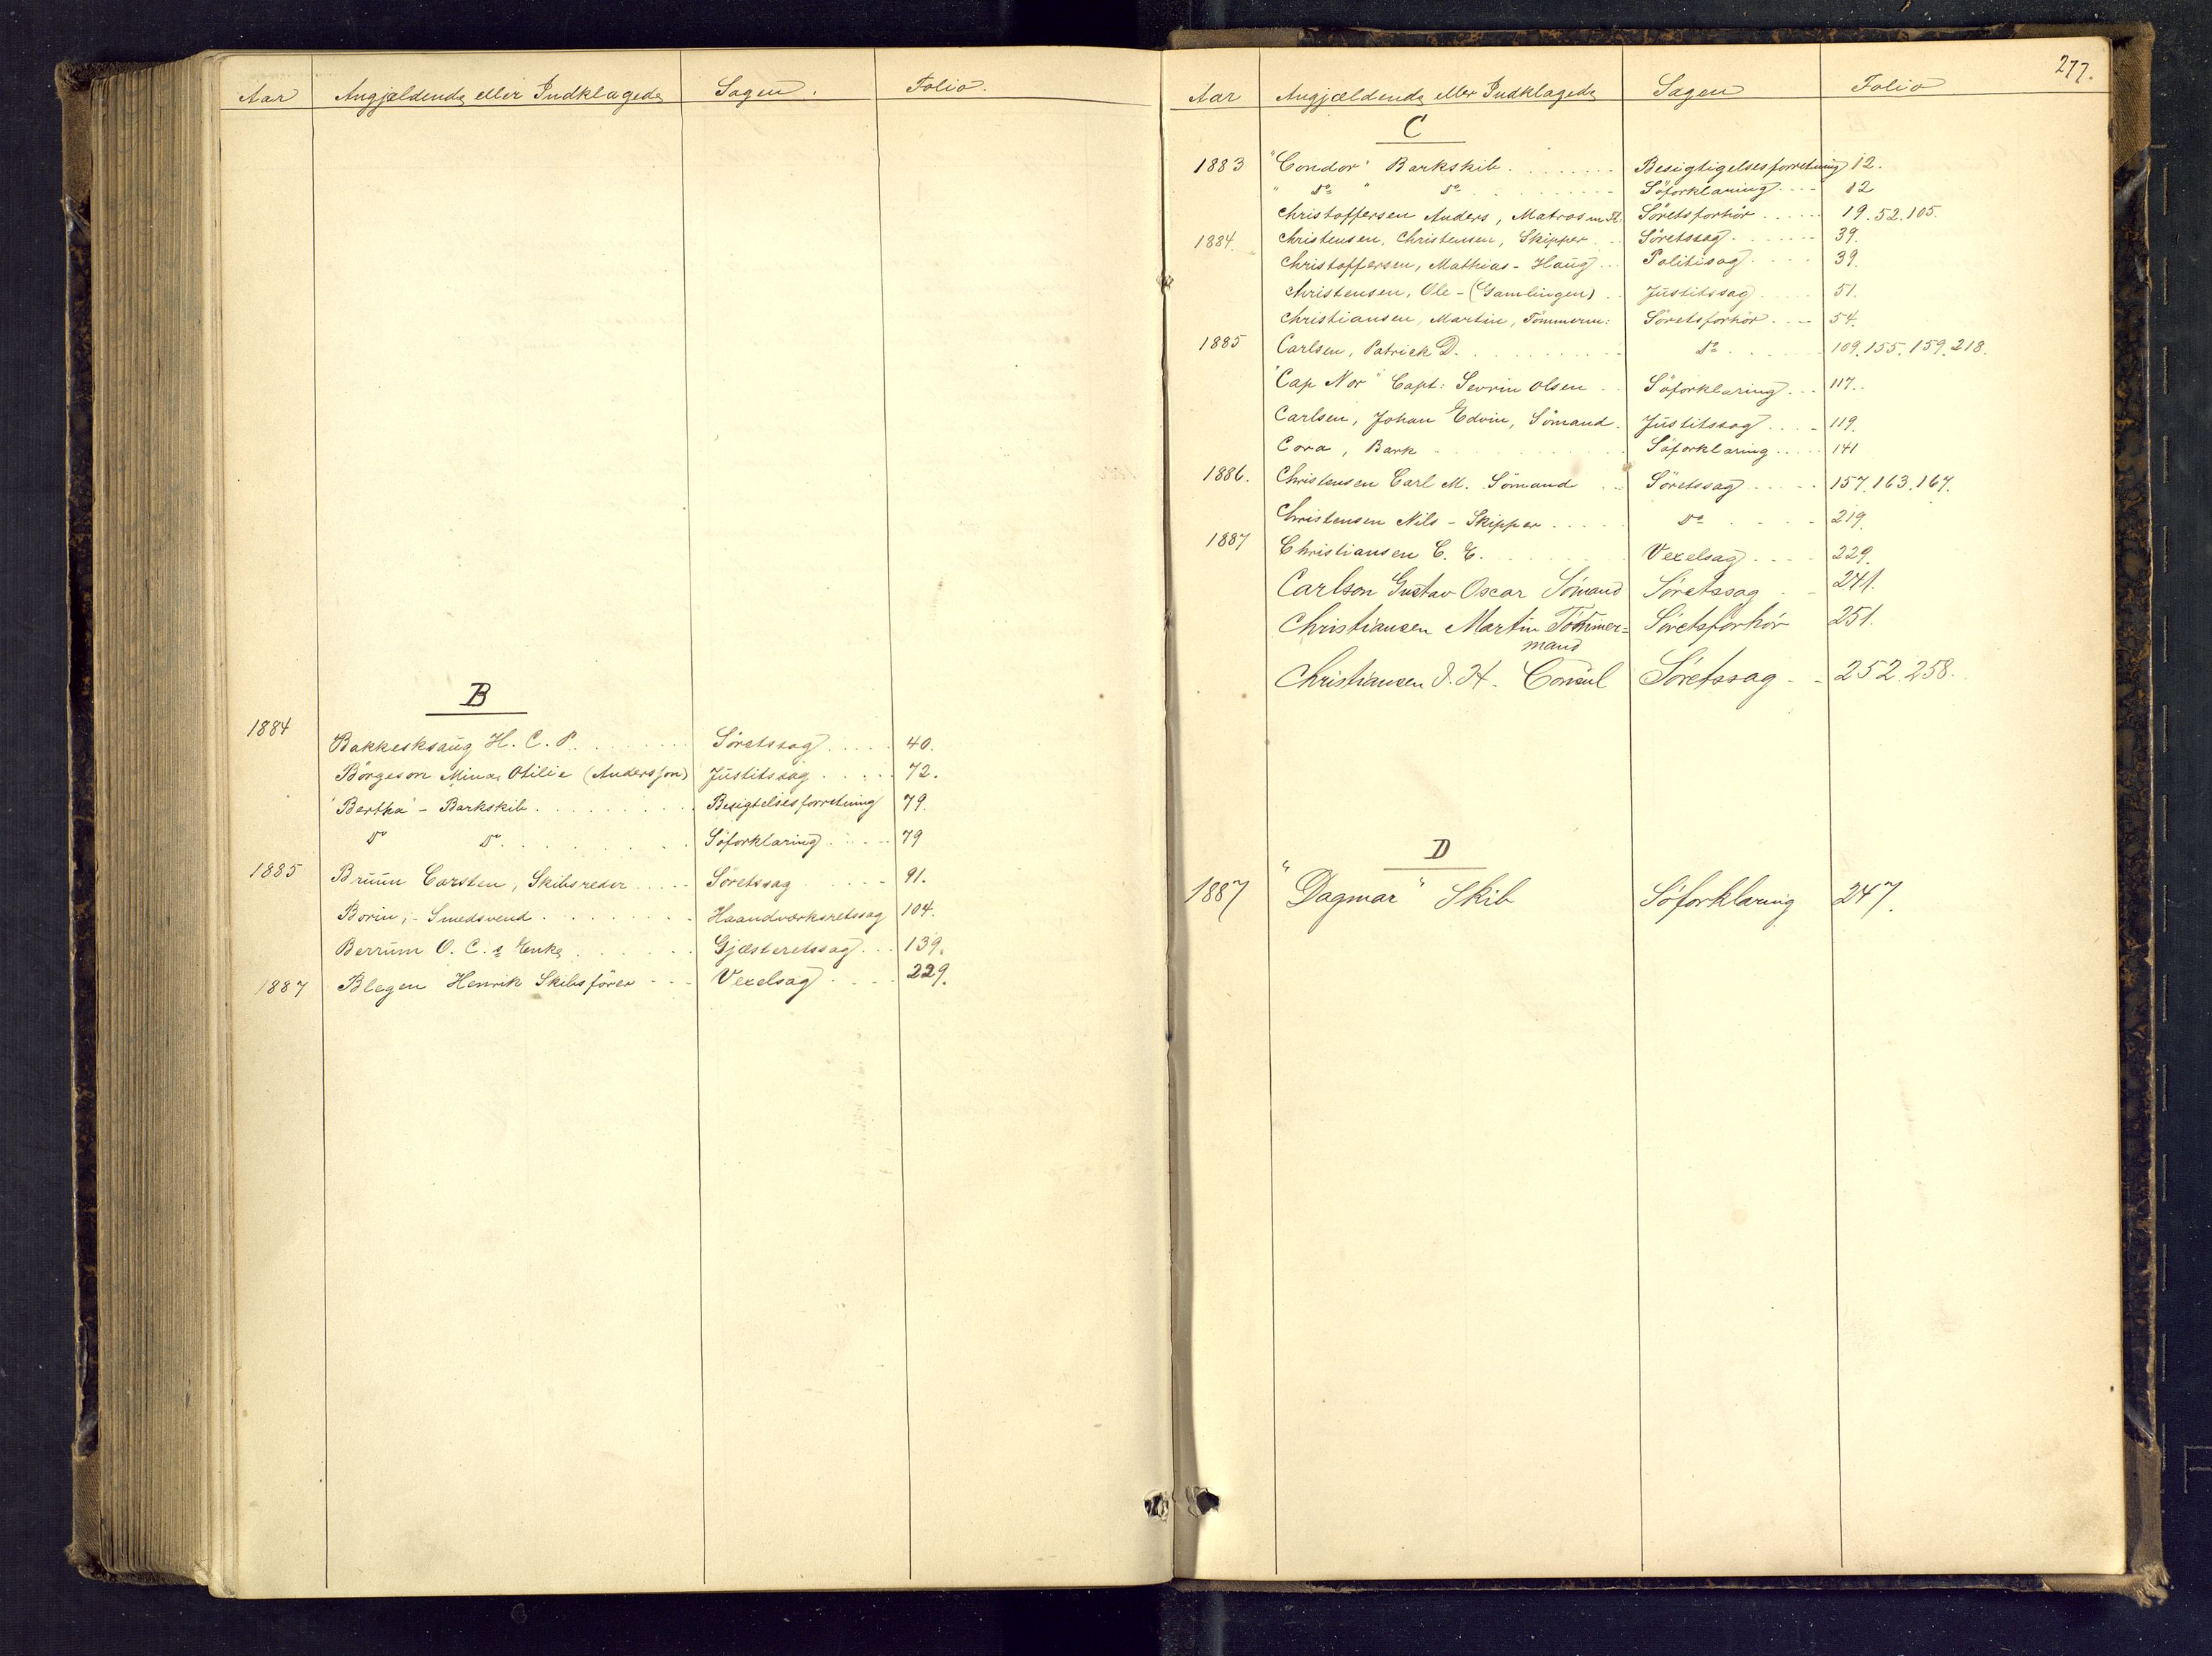 Aar Angjældende eller Indklagede Sagen. Folio.
B
1884 Bakkeskaug H. C. P. Söretssag 40.
Börgeson Mina Otilie (Andersson) Justitssag 72.
"Bertha" - Barkskib Besigtelsesforretning 79.
Do Do Söforklaring 79
1885 Bruun Carsten, Skibsreder Söretssag 91.
Borin, - Smedsvend Haandværksretssag 104.
Berrum O. C.s Enke Gjæsteretssag 139.
1887 Blegen Henrik Skibsförer Vexelsag 229.
277.
Aar Angjældende eller Indklagede Sagen Folio
C
1883 "Condor" Barkskib Besigtigelsesforretning 12.
" Do " Do Söforklaring 12
Christoffersen Anders, Matros m. fl. Söretsforhör 19. 52. 105.
1884. Christensen, Christensen, Skipper Söretssag 39.
Christoffersen, Mathias - Haug Politisag 39.
Christensen, Ole - (Gamlingen) Justitssag 51.
Christiansen, Martin, Tömmerm: Söretsforhör 54.
1885 Carlsen, Patrick D. Do 109. 155. 159. 218.
"Cap Nor" Capt: Sevrin Olsen Söforklaring 117.
Carlsen, Johan Edvin, Sömand. Justitssag 119.
Cora, Bark Söforklaring 141
1886. Christensen Carl M. Sömand Söretssag 157. 163. 167.
Christensen Nils - Skipper Do 219.
1887 Christiansen C. E. Vexelsag 229.
Carlson Gustav Oscar Sömand Söretssag 241.
Christiansen Martin Tömmer= Söretsforhör 251.
mand
Christiansen J. H. Consul Söretssag 252. 258.
D
1887 "Dagmar" Skib Söforklaring 247.